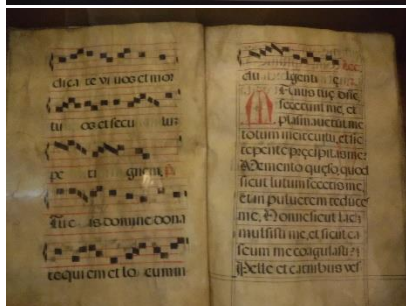 dica re vi uos et mor
tu os et secu lu:
pe r i gnem. P
Tu e is domine dona
requi em et lo cum in
du lgenti e.
Manus tue dñe
fecerunt me, et
plasmauerunt me
totum in circuitu, et sic
repente precipitas me:
Memento queso, quod
sicut lutum feceris me,
et in puluerem reduces
me, Nonne sicut lac
mulsisti me, et sicut ca
seum me coagulasti?
Pelle et carnibus ves